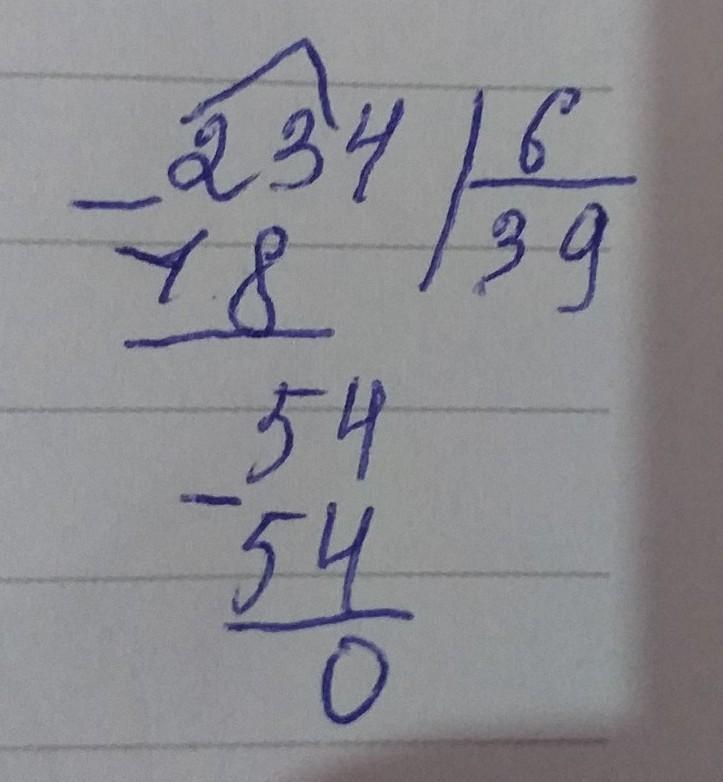 234 | 6
- 18 | 39
54
- 54
0